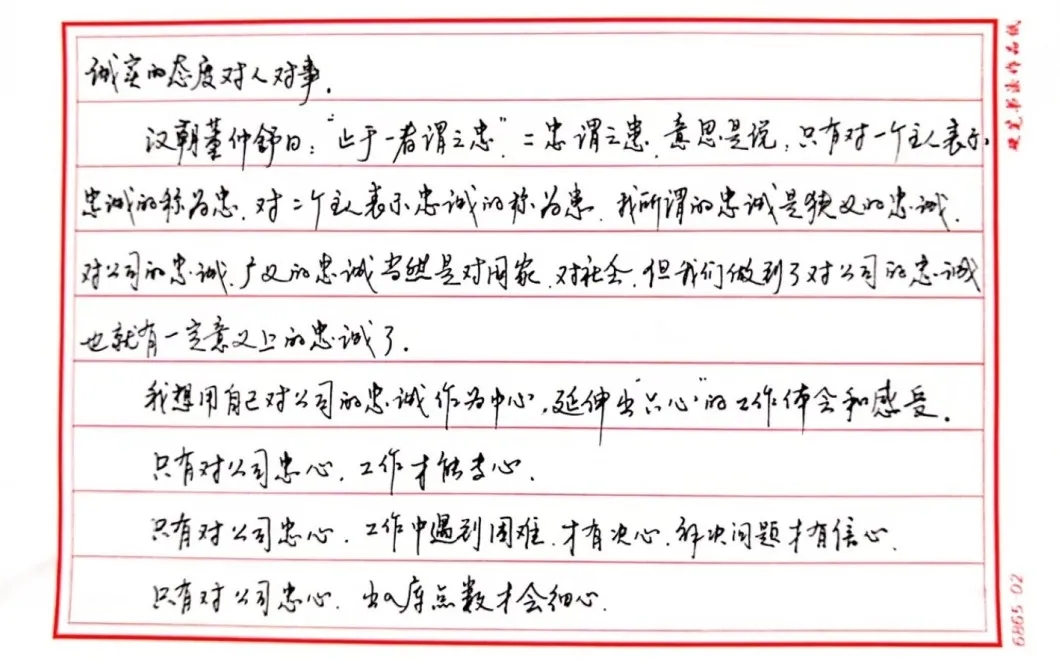 诚实的态度对人对事.
汉朝董仲舒曰:“止于一者谓之忠”二忠谓之患.意思是说,只有对一个主人表示
忠诚的称为忠.对二个主人表示忠诚的称为患.我所谓的忠诚是狭义的忠诚.
对公司的忠诚.广义的忠诚当然是对国家.对社会.但我们做到了对公司的忠诚
也就有一定意义上的忠诚了.
我想用自己对公司的忠诚作为中心,延伸出“六心”的工作体会和感受.
只有对公司忠心.工作才能专心.
只有对公司忠心.工作中遇到困难.才有决心.解决问题才有信心.
只有对公司忠心.出入库点数才会细心.
硬笔书法作品纸
6865-02